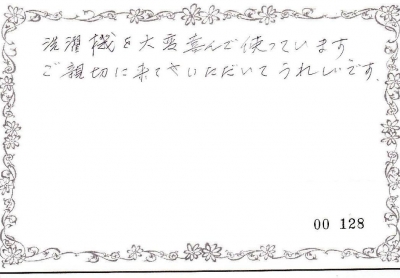 洗濯機を大変喜んで使っています
ご親切に来てさいただいてうれしいです.
00 128